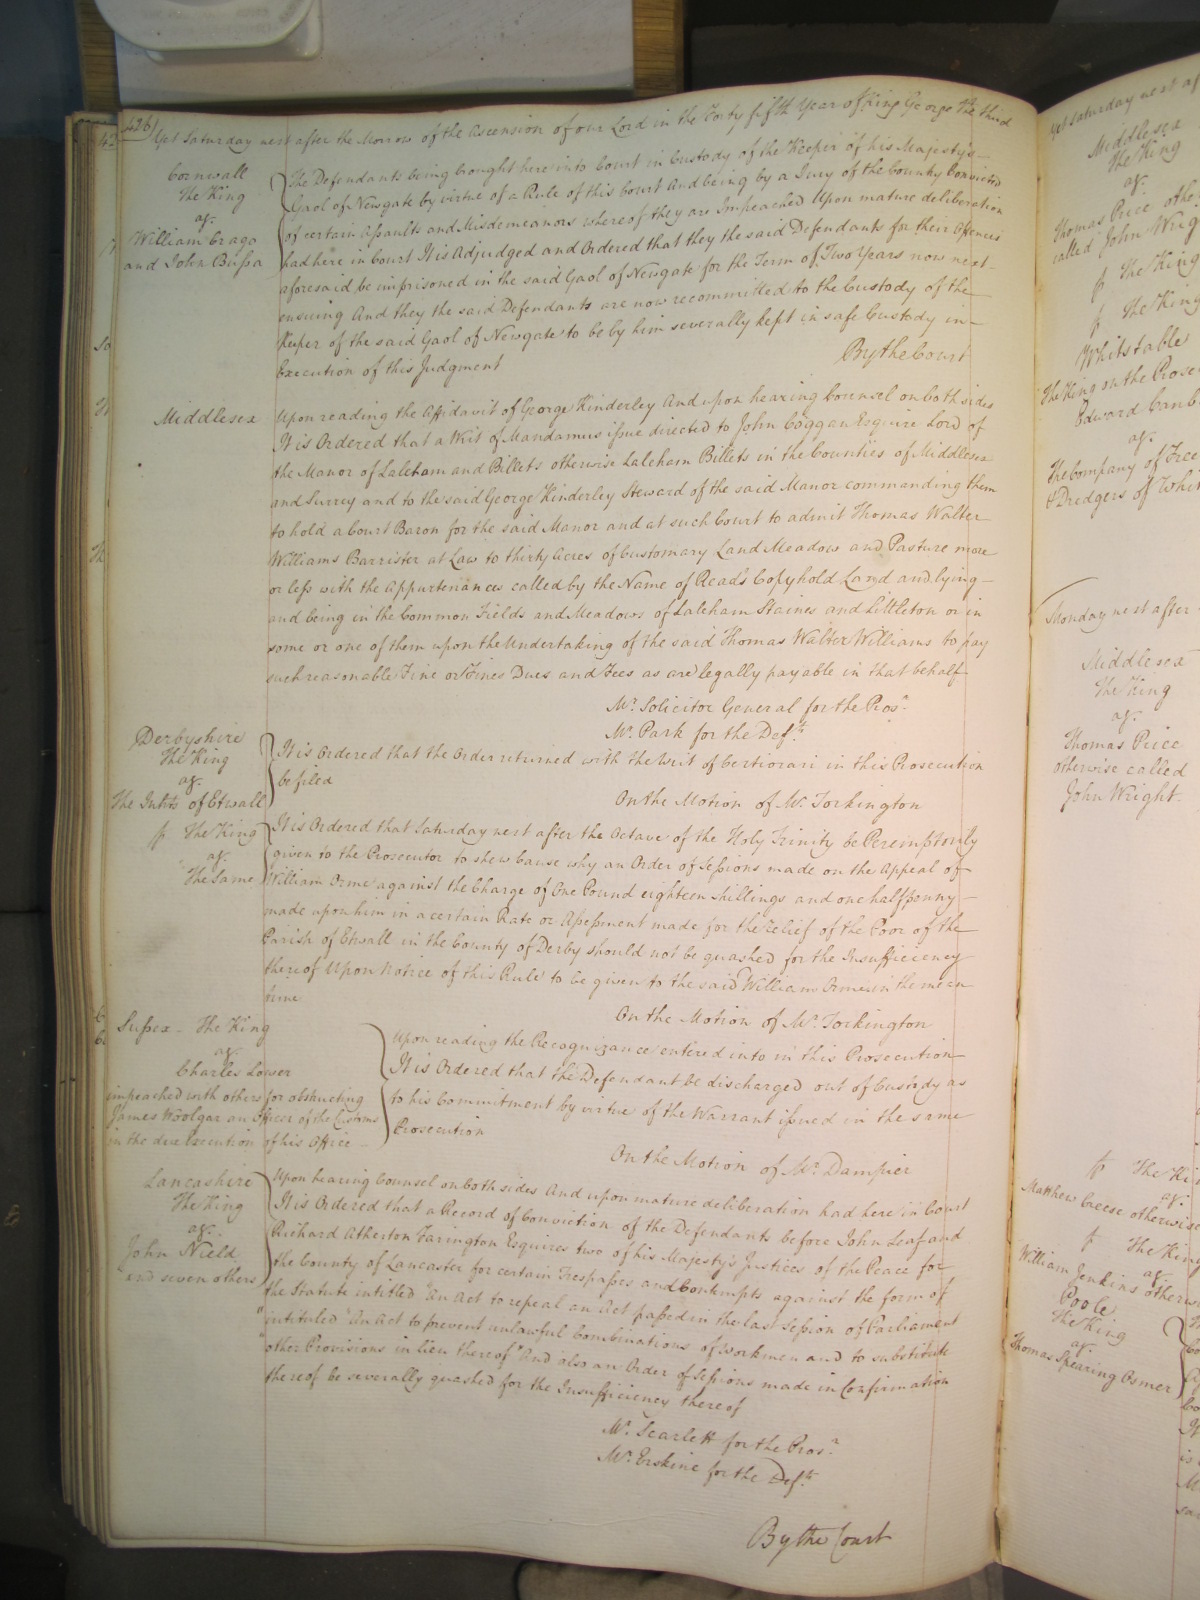 426
Yet Saturday next after the Morrow of the Ascension of our Lord in the Forty fifth Year of King George the third
Cornwall
The King
agt.
William Crago
and John Bussa
The Defendants being brought here into Court in Custody of the Keeper of his Majesty's
Gaol of Newgate by virtue of a Rule of this Court And being by a Jury of the County Convicted
of certain Assaults and Misdemeanors whereof they are Impeached Upon mature deliberation
had here in Court It is Adjudged and Ordered that they the said Defendants for their Offences
aforesaid be imprisoned in the said Gaol of Newgate for the Term of Two Years now next
ensuing And they the said Defendants are now recommitted to the Custody of the
Keeper of the said Gaol of Newgate to be by him severally kept in safe Custody in
Execution of this Judgment
By the Court
Middlesex
Upon reading the Affidavit of George Kinderley And upon hearing Counsel on both sides
It is Ordered that a Writ of Mandamus issue directed to John Coggan Esquire Lord of
the Manor of Laleham and Billets otherwise Laleham Billets in the Counties of Middlesex
and Surrey and to the said George Kinderley Steward of the said Manor commanding them
to hold a Court Baron for the said Manor and at such Court to admit Thomas Walter
Williams Barrister at Law to thirty Acres of Customary Land Meadow and Pasture more
or less with the Appurtenances called by the Name of Reads Copyhold Land and lying
and being in the Common Fields and Meadows of Laleham Staines and Littleton or in
some or one of them upon the Undertaking of the said Thomas Walter Williams to pay
such reasonable Fine or Fines Dues and Fees as are legally payable in that behalf
Mr. Solicitor General for the Pros.r
Mr. Park for the Def.t
Derbyshire
The King
agt.
The Inhts. of Etwall
It is Ordered that the Order returned with the Writ of Certiorari in this Prosecution
be filed
On the Motion of Mr. Torkington
The King
agt.
The Same
It is Ordered that Saturday next after the Octave of the Holy Trinity be Peremptorily
given to the Prosecutor to shew Cause why an Order of Sessions made on the Appeal of
William Orme against the Charge of One Pound eighteen shillings and one halfpenny
made upon him in a certain Rate or Assessment made for the relief of the Poor of the
Parish of Etwall in the County of Derby should not be quashed for the Insufficiency
thereof Upon Notice of this Rule to be given to the said William Orme in the mean
time
On the Motion of Mr. Torkington
Sussex - The King
agt.
Charles Lower
impeached with others for obstructing
James Woolgar an Officer of the Customs
in the due execution of his Office
Upon reading the Recognizance entered into in this Prosecution
It is Ordered that the Defendant be discharged out of Custody as
to his Commitment by virtue of the Warrant issued in the same
Prosecution
On the Motion of Mr. Dampier
Lancashire
The King
agt.
John Nield
and seven others
Upon hearing Counsel on both sides And upon mature deliberation had here in Court
It is Ordered that a Record of Conviction of the Defendants before John Leaf and
Richard Atherton Farington Esquires two of his Majesty's Justices of the Peace for
the County of Lancaster for certain Trespasses and Contempts against the form of
the Statute intitled "An Act to repeal an Act passed in the last Session of Parliament
"intituled "An Act to prevent unlawful Combinations of Workmen and to substitute
"other Provisions in lieu thereof" And also an Order of Sessions made in Confirmation
thereof be severally quashed for the Insufficiency thereof
Mr. Scarlett for the Pros.r
Mr. Erskine for the Def.ts
By the Court
Yet Saturday next af
Middlesex
The King
agt.
Thomas Price othe
called John Wrig
The King
The King
Whitstable
The King on the Prose
Edward Canb
agt.
The Company of Free
& Dredgers of Whit
Monday next after
Middlesex
The King
agt.
Thomas Price
otherwise called
John Wright.
The Ki
agt.
Matthew Creese otherwise
The King
agt.
William Jenkins otherw
Poole
The King
agt.
Thomas Spearing Osmer